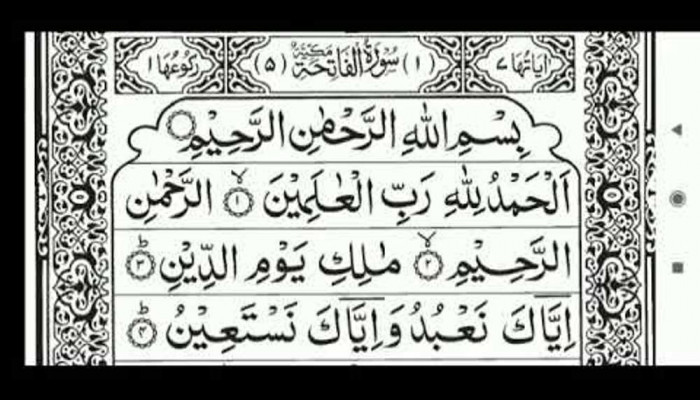 اٰیَاتُهَا ۷ (۱) سُوْرَةُ الْفَاتِحَةِ مَکِّیَّةٌ (۵) رُکُوْعُهَا ۱
بِسْمِ اللهِ الرَّحْمٰنِ الرَّحِیْمِ
اَلْحَمْدُ لِلّٰهِ رَبِّ الْعٰلَمِیْنَ ۱ۙ الرَّحْمٰنِ
الرَّحِیْمِ ۲ۙ مٰلِكِ یَوْمِ الدِّیْنِ ۳ؕ
اِیَّاكَ نَعْبُدُ وَاِیَّاكَ نَسْتَعِیْنُ ۴ؕ